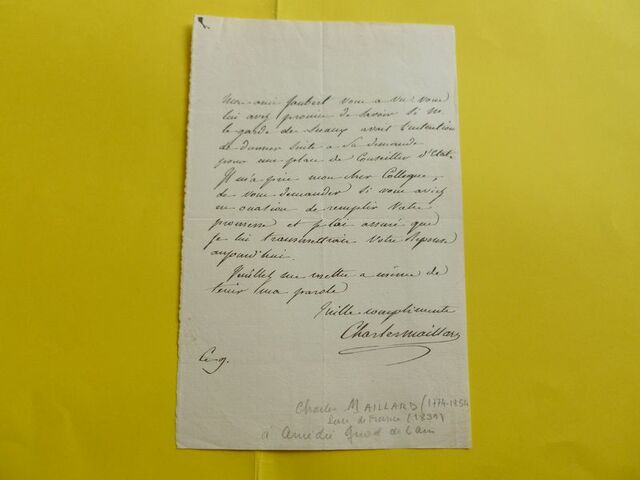 Mon ami Jaubert vous a vu: vous
lui avez promis de savoir si Mr
le garde des Sceaux avait l'intention
de donner suite a sa demande
pour une place de Conseiller d'Etat.
Il m'a prié mon cher Collegue,
de vous demander si vous aviez
eu occasion de remplir votre
promesse et je lai assuré que
je lui transmettrais votre reponse
aujourd'hui.
Veuillez me mettre a même de
tenir ma parole
Mille compliments
Charles Maillard
Ce 9.
Charles MAILLARD (1774-1854
Pair de France (1839)
à Amédée de l'Ain